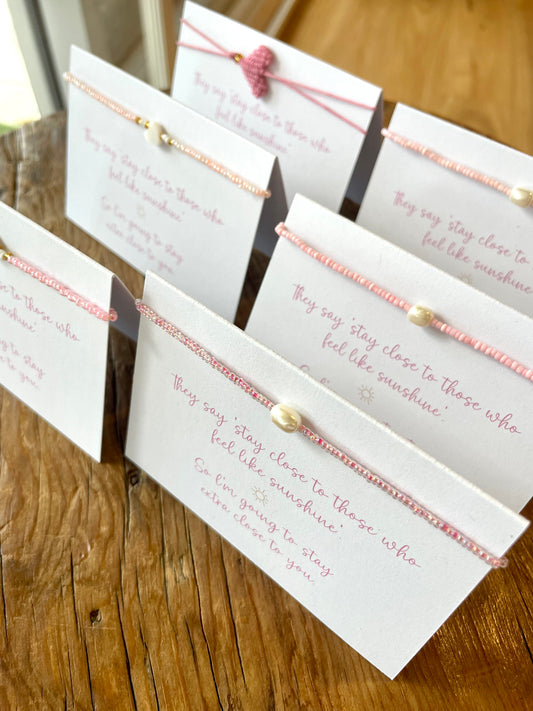 They say 'stay close to those who
feel like sunshine'
They say 'stay close to those who
feel like sunshine'
So I'm going to stay
extra close to you.
They say 'stay close to
feel like sunshine
to those who
sunshine'.
to stay
to you.
They say 'stay close to those who
feel like sunshine'.
So I'm
They say 'stay close to those who
feel like sunshine'.
So I'm going to stay
extra close to you.